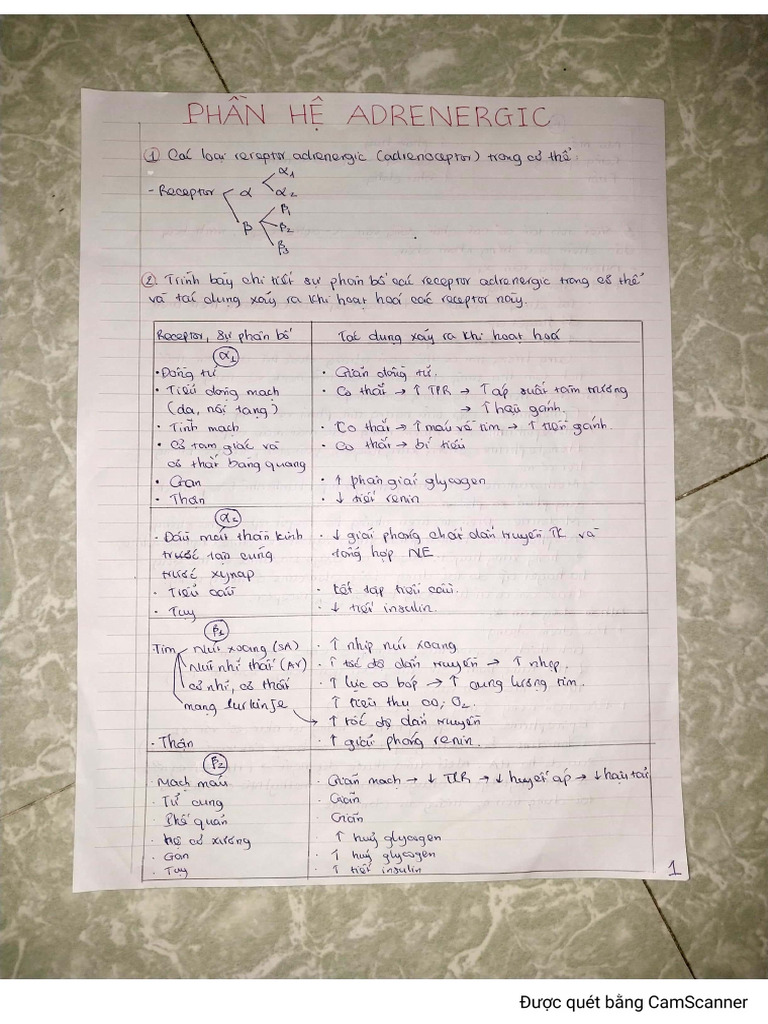 PHẦN HỆ ADRENERGIC
① Các loại receptor adrenergic (adrenoceptor) trong cơ thể:
- Receptor α α1
α2
β β1
β2
β3
② Trình bày chi tiết sự phân bố các receptor adrenergic trong cơ thể
và tác dụng xảy ra khi hoạt hoá các receptor này.
Receptor, sự phân bố Tác dụng xảy ra khi hoạt hoá
α1
• Đồng tử • Giãn đồng tử.
• Tiểu động mạch • Co thắt → ↑ TPR → ↑ áp suất tâm trương
(da, nội tạng) → ↑ hậu gánh.
• Tĩnh mạch • Co thắt → ↑ máu về tim → ↑ tiền gánh.
• Cơ tam giác và • Co thắt → bí tiểu
cơ thắt bàng quang
• Gan • ↑ phân giải glycogen
• Thận • ↓ tiết renin
α2
• Đầu mút thần kinh • ↓ giải phóng chất dẫn truyền TK và
trước tận cùng tổng hợp NE
trước xynap
• Tiểu cầu • kết tập tiểu cầu.
• Tuỵ • ↓ tiết insulin.
β1
Tim Nút xoang (SA) • ↑ nhịp nút xoang
Nút nhĩ thất (AV) • ↑ tốc độ dẫn truyền → ↑ nhịp.
cơ nhĩ, cơ thất • ↑ lực co bóp → ↑ cung lượng tim.
mạng Purkinje ↑ tiêu thụ O2.
→ ↑ tốc độ dẫn truyền
• Thận • ↑ giải phóng renin.
β2
Mạch máu • Giãn mạch → ↓ TPR → ↓ huyết áp → ↓ hậu tải
• Tử cung • Giãn
• Phế quản • Giãn
• Hệ cơ xương • ↑ huỷ glycogen
• Gan • ↑ huỷ glycogen
• Tuỵ • ↑ tiết insulin
1
Được quét bằng CamScanner